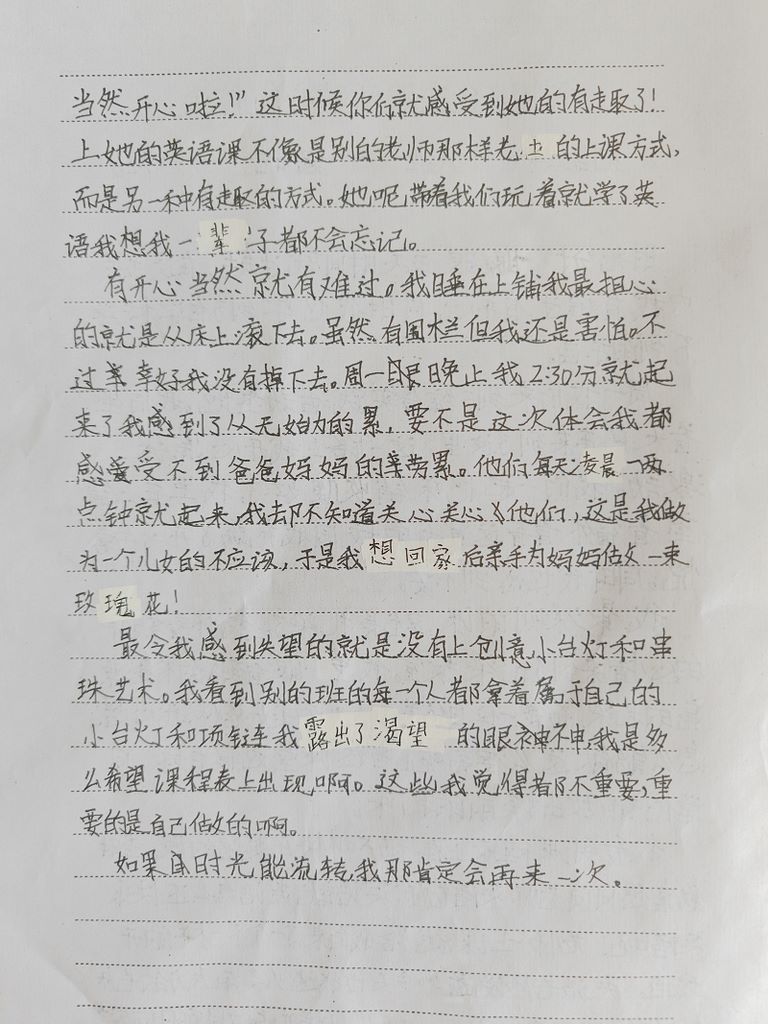 当然开心啦！”这时候你们就感受到她的有走取了！
上她的英语课不像是别的老师那样老土的上课方式，
而是另一种有趣的方式。她呢，带着我们玩着就学了英
语我想我一辈子都不会忘记。
有开心当然就有难过。我睡在上铺我最担心
的就是从床上滚下去。虽然有围栏但我还是害怕。不
过幸好我没有掉下去。周一晚上我2:30分就起
来了我感到了从无始的累，要不是这次体会我都
感受不到爸爸妈妈的辛劳累。他们每天凌晨一两
点钟就起来，我却不知道关心关心他们，这是我做
为一个儿女的不应该，于是我想回家后亲手为妈妈做一束
玫瑰花！
最令我感到失望的就是没有上创意小台灯和串
珠艺术。我看到别的班的每一个人都拿着属于自己的
小台灯和项链我露出了渴望的眼神，我是多
么希望课程表上出现啊。这些我觉得都不重要，重
要的是自己做的啊。
如果时光能流转，我那肯定会再来一次。